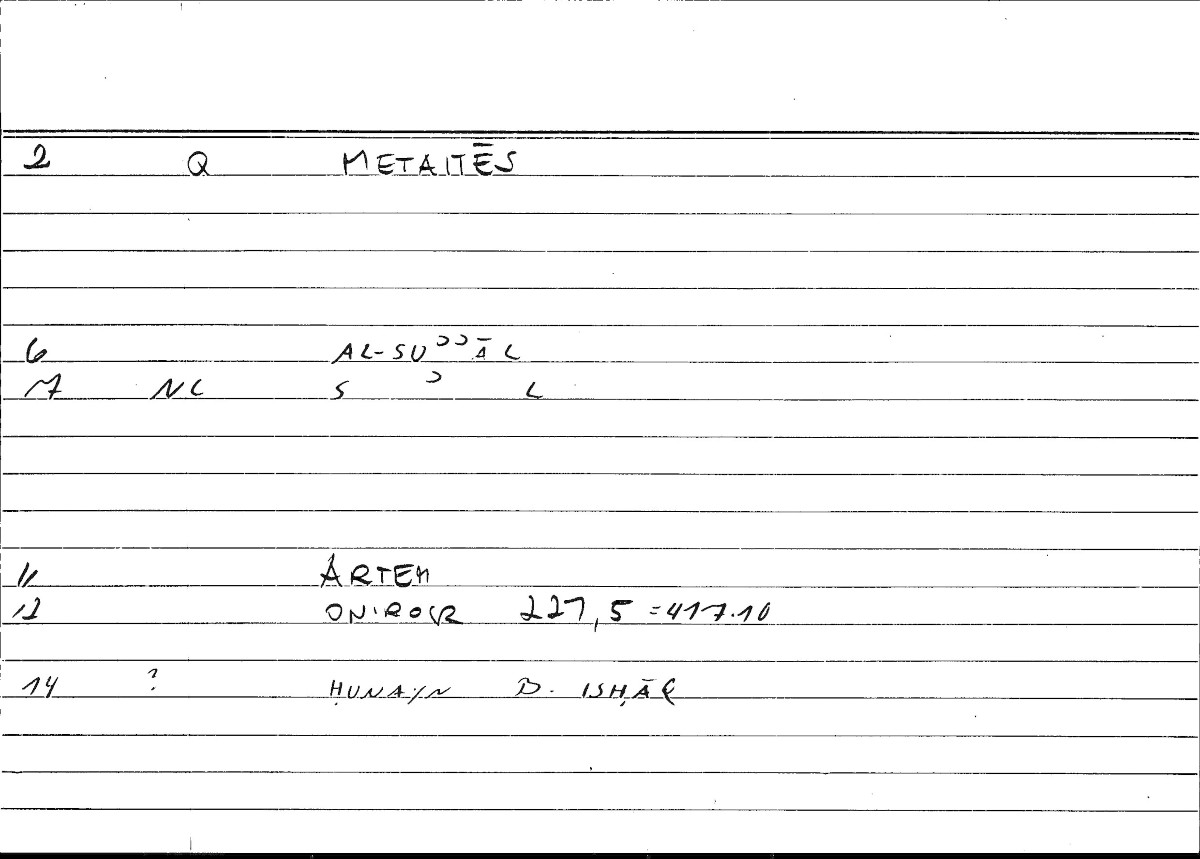 2 Q METAITĒS
6 AL-SUʾʾĀL
17 NL S ʾ L
11 ARTEM
12 ONIROCR 227,5 =417.10
14 ? ḤUNAYN B. ISḤĀQ